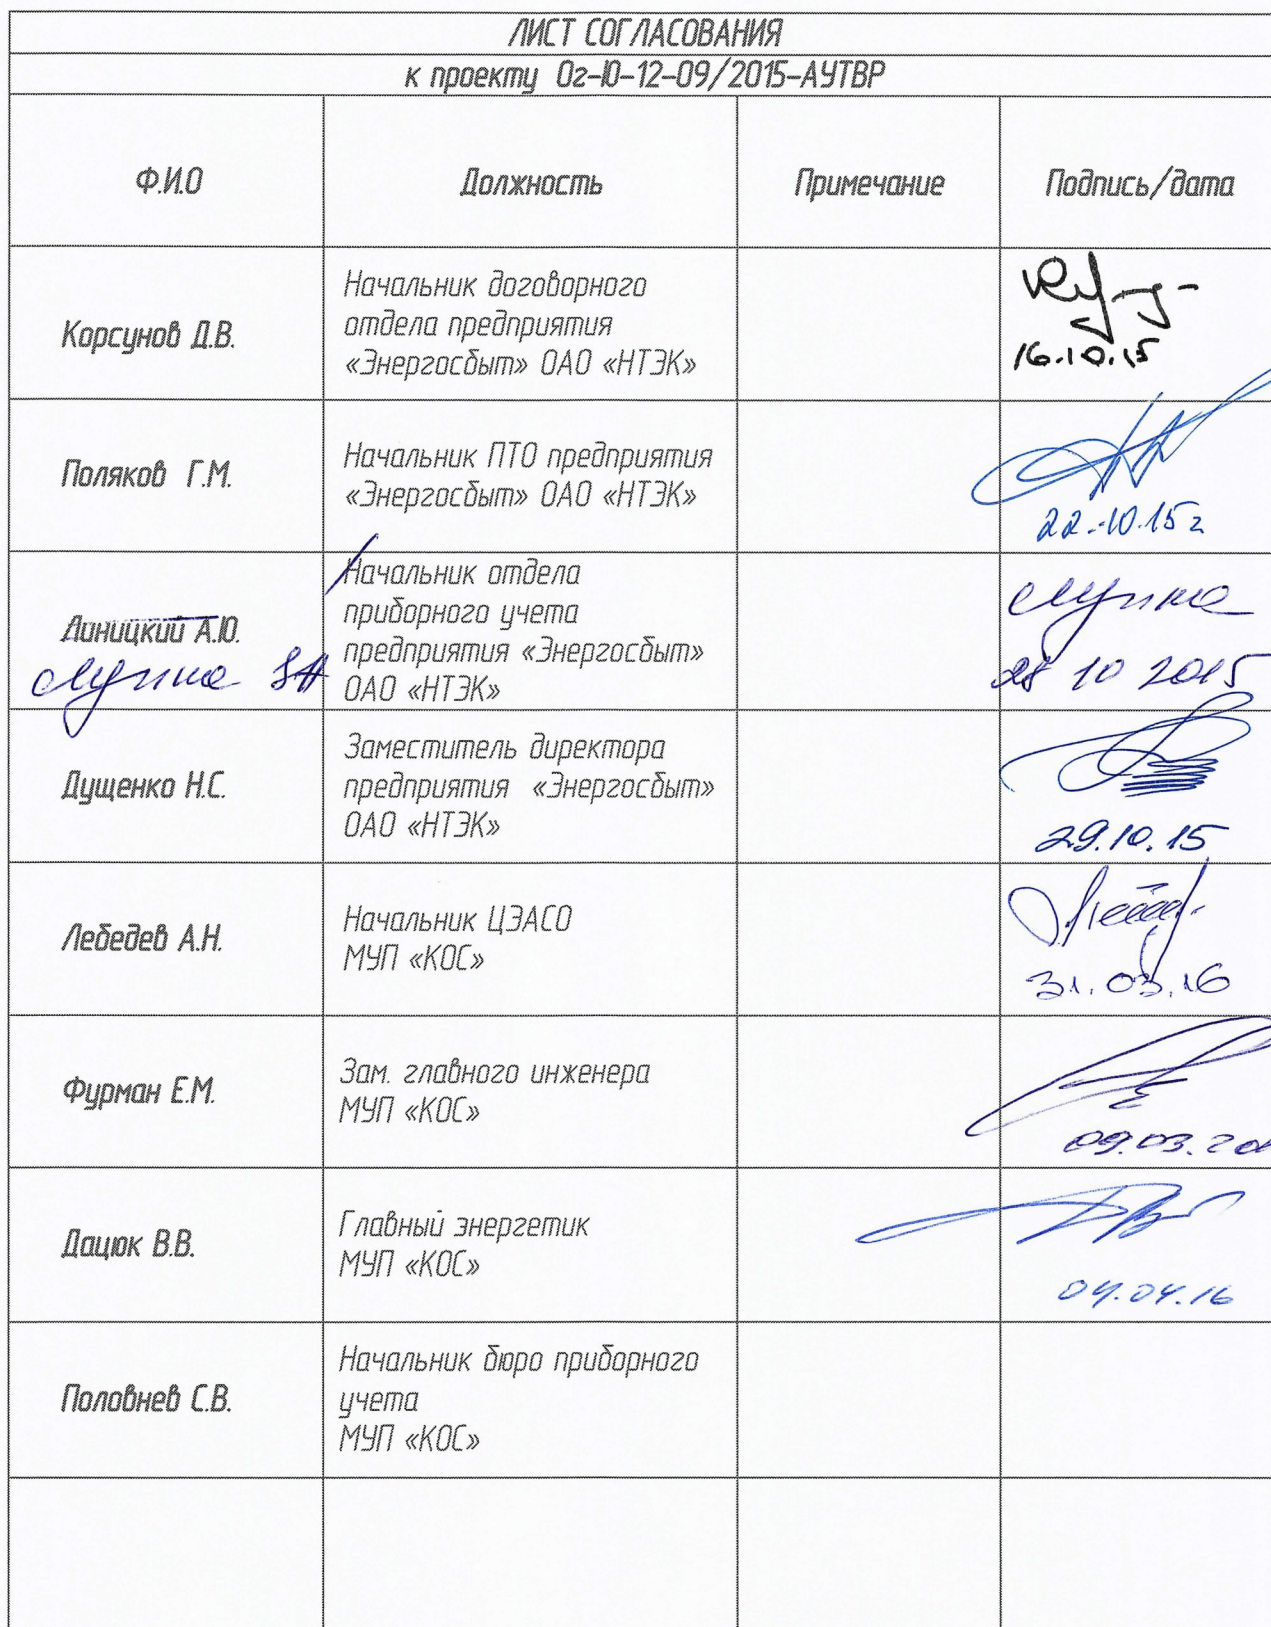 ЛИСТ СОГЛАСОВАНИЯ
к проекту Ог-Ю-12-09/2015-АУТВР
Ф.И.О Должность Примечание Подпись/дата
Корсунов Д.В.
Начальник договорного
отдела предприятия
«Энергосбыт» ОАО «НТЭК»
16.10.15
Поляков Г.М.
Начальник ПТО предприятия
«Энергосбыт» ОАО «НТЭК»
22.10.15г
Линицкий А.Ю.
Начальник отдела
приборного учета
предприятия «Энергосбыт»
ОАО «НТЭК»
28 10 2015
Дущенко Н.С.
Заместитель директора
предприятия «Энергосбыт»
ОАО «НТЭК»
29.10.15
Лебедев А.Н.
Начальник ЦЭАСО
МУП «КОС»
31.03.16
Фурман Е.М.
Зам. главного инженера
МУП «КОС»
09.03.20
Дацюк В.В.
Главный энергетик
МУП «КОС»
04.04.16
Половнев С.В.
Начальник бюро приборного
учета
МУП «КОС»